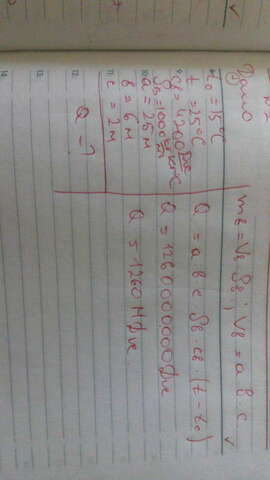 Дано
t₀ = 15°C
t = 25°C
cв = 4200 Дж/кг°C
ρв = 1000 кг/м³
a = 25 м
b = 6 м
c = 2 м
Q - ?
mв = Vв ρв; Vв = a b c
Q = a b c · ρв · cв · (t - t₀)
Q = 12600000000 Дж
Q = 1260 МДж
9.
10.
11.
12.
13.
14.